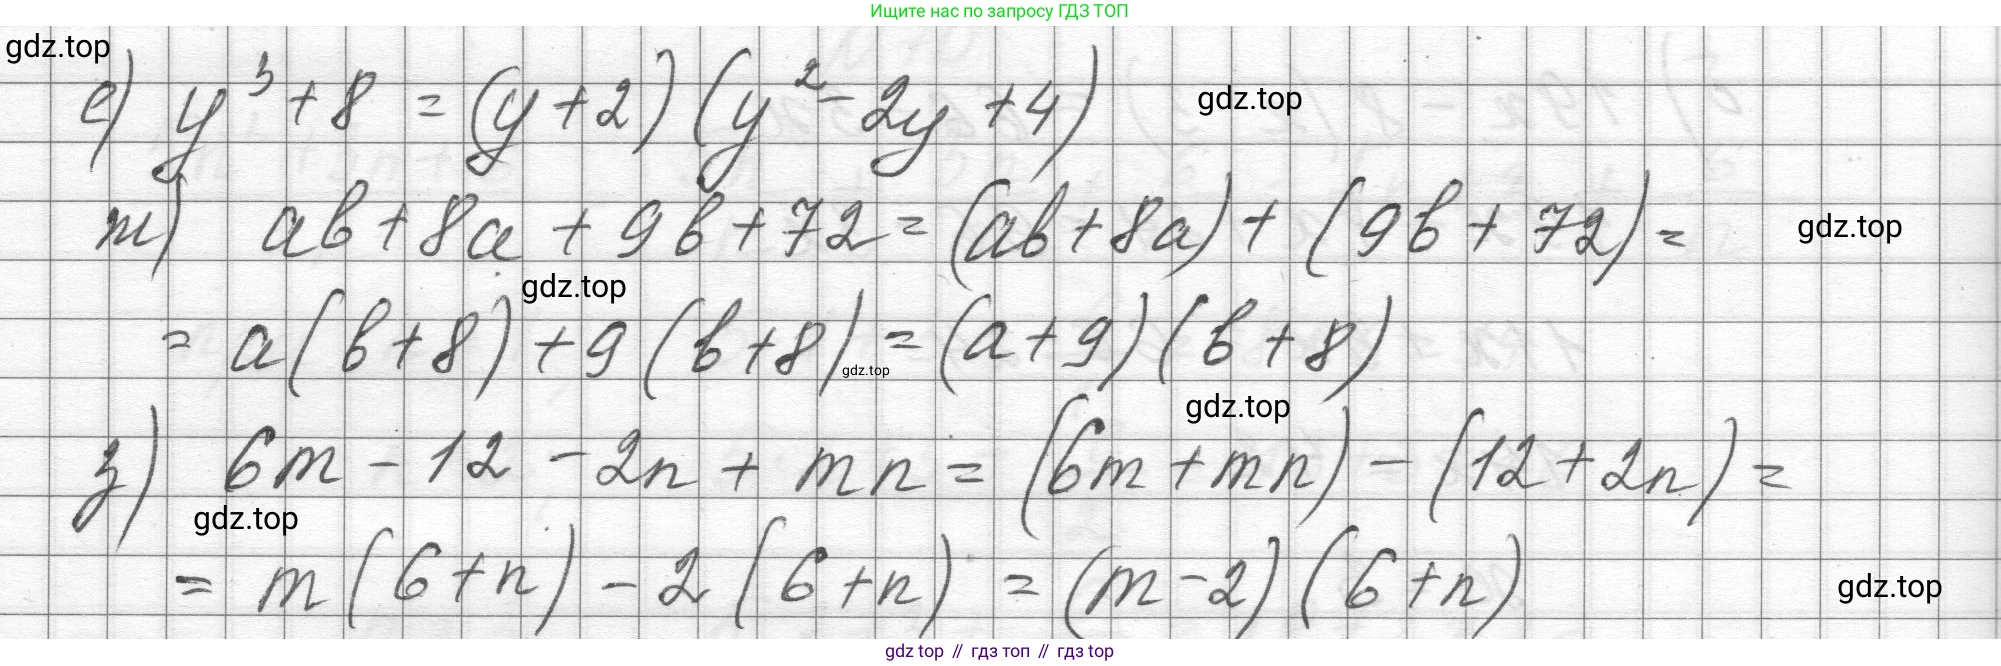 Ищите нас по запросу ГДЗ ТОП
gdz.top
е) y³ + 8 = (y + 2)(y² - 2y + 4)
gdz.top
ж) ab + 8a + 9b + 72 = (ab + 8a) + (9b + 72) =
gdz.top
gdz.top
= a(b + 8) + 9(b + 8) = (a + 9)(b + 8)
gdz.top
gdz.top
з) 6m - 12 - 2n + mn = (6m + mn) - (12 + 2n) =
gdz.top
= m(6 + n) - 2(6 + n) = (m - 2)(6 + n)
gdz.top
gdz top // гдз топ // гдз.top